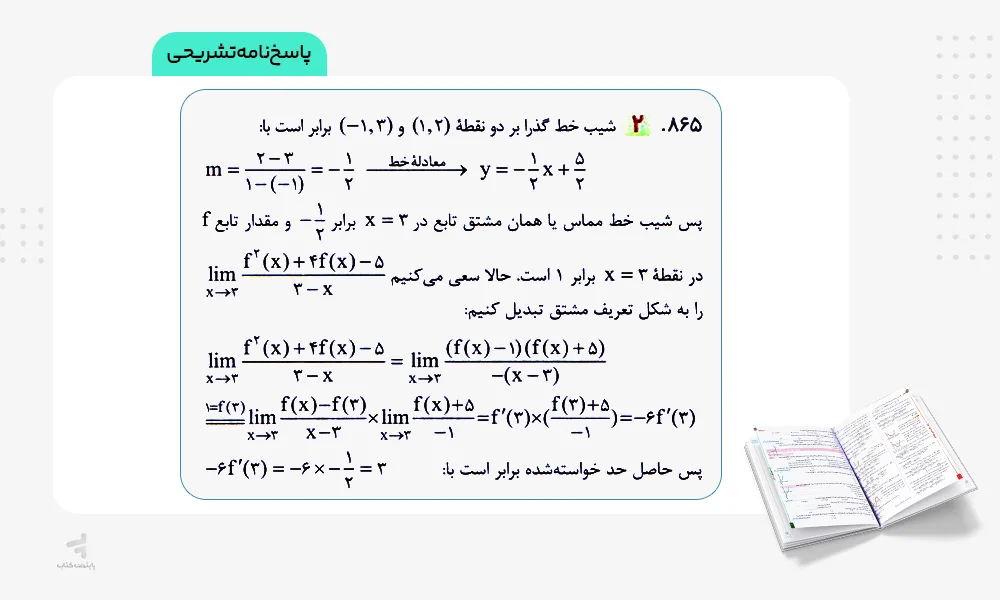 پاسخ‌نامه‌تشریحی
۸۶۵. ۲ شیب خط گذرا بر دو نقطهٔ (۱,۲) و (−۱,۳) برابر است با:
m = (۲−۳)/(۱−(−۱)) = −۱/۲ معادلهٔ خط → y = −۱/۲ x + ۵/۲
پس شیب خط مماس یا همان مشتق تابع در x = ۳ برابر −۱/۲ و مقدار تابع f
در نقطهٔ x = ۳ برابر ۱ است. حالا سعی می‌کنیم lim x→۳ (f^۲(x)+۴f(x)−۵)/(۳−x)
را به شکل تعریف مشتق تبدیل کنیم:
lim x→۳ (f^۲(x)+۴f(x)−۵)/(۳−x) = lim x→۳ ((f(x)−۱)(f(x)+۵))/(−(x−۳))
۱=f(۳) = lim x→۳ (f(x)−f(۳))/(x−۳) × lim x→۳ (f(x)+۵)/(−۱) = f′(۳)×((f(۳)+۵)/(−۱)) = −۶f′(۳)
پس حاصل حد خواسته‌شده برابر است با: −۶f′(۳) = −۶×−۱/۲ = ۳
پایتخت کتاب